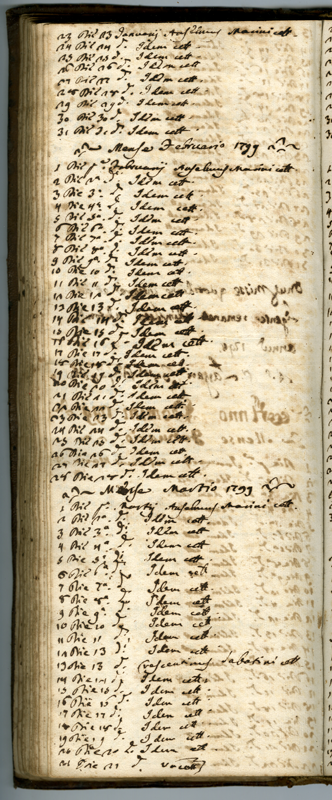 23 Die 23 Januarij Anselmus Marini cett
24 Die 24 d. Idem cett
25 Die 25 d. Idem cett
26 Die 26 d. Idem cett
27 Die 27 d. Idem cett
28 Die 28 d. Idem cett
29 Die 29 d. Idem cett
30 Die 30 d. Idem cett
31 Die 31 d. Idem cett
Mense Februario 1799
1 Die p.a Februarij Anselmus Marini cett
2 Die 2 d. Idem cett
3 Die 3 d. Idem cett
4 Die 4 d. Idem cett
5 Die 5 d. Idem cett
6 Die 6 d. Idem cett
7 Die 7 d. Idem cett
8 Die 8 d. Idem cett
9 Die 9 d. Idem cett
10 Die 10 d. Idem cett
11 Die 11 d. Idem cett
12 Die 12 d. Idem cett
13 Die 13 d. Idem cett
14 Die 14 d. Idem cett
15 Die 15 d. Idem cett
16 Die 16 d. Idem cett
17 Die 17 d. Idem cett
18 Die 18 d. Idem cett
19 Die 19 d. Idem cett
20 Die 20 d. Idem cett
21 Die 21 d. Idem cett
22 Die 22 d. Idem cett
23 Die 23 d. Idem cett
24 Die 24 d. Idem cett
25 Die 25 d. Idem cett
26 Die 26 d. Idem cett
27 Die 27 d. Idem cett
28 Die 28 d. Idem cett
Mense Martio 1799
1 Die p.a Martij Anselmus Marini cett
2 Die 2 d. Idem cett
3 Die 3 d. Idem cett
4 Die 4 d. Idem cett
5 Die 5 d. Idem cett
6 Die 6 d. Idem cett
7 Die 7 d. Idem cett
8 Die 8 d. Idem cett
9 Die 9 d. Idem cett
10 Die 10 d. Idem cett
11 Die 11 d. Idem cett
12 Die 12 d. Idem cett
13 Die 13 d. Crescentinus Sabatini cett
14 Die 14 d. Idem cett
15 Die 15 d. Idem cett
16 Die 16 d. Idem cett
17 Die 17 d. Idem cett
18 Die 18 d. Idem cett
19 Die 19 d. Idem cett
20 Die 20 d. Idem cett
21 Die 21 d. vacat